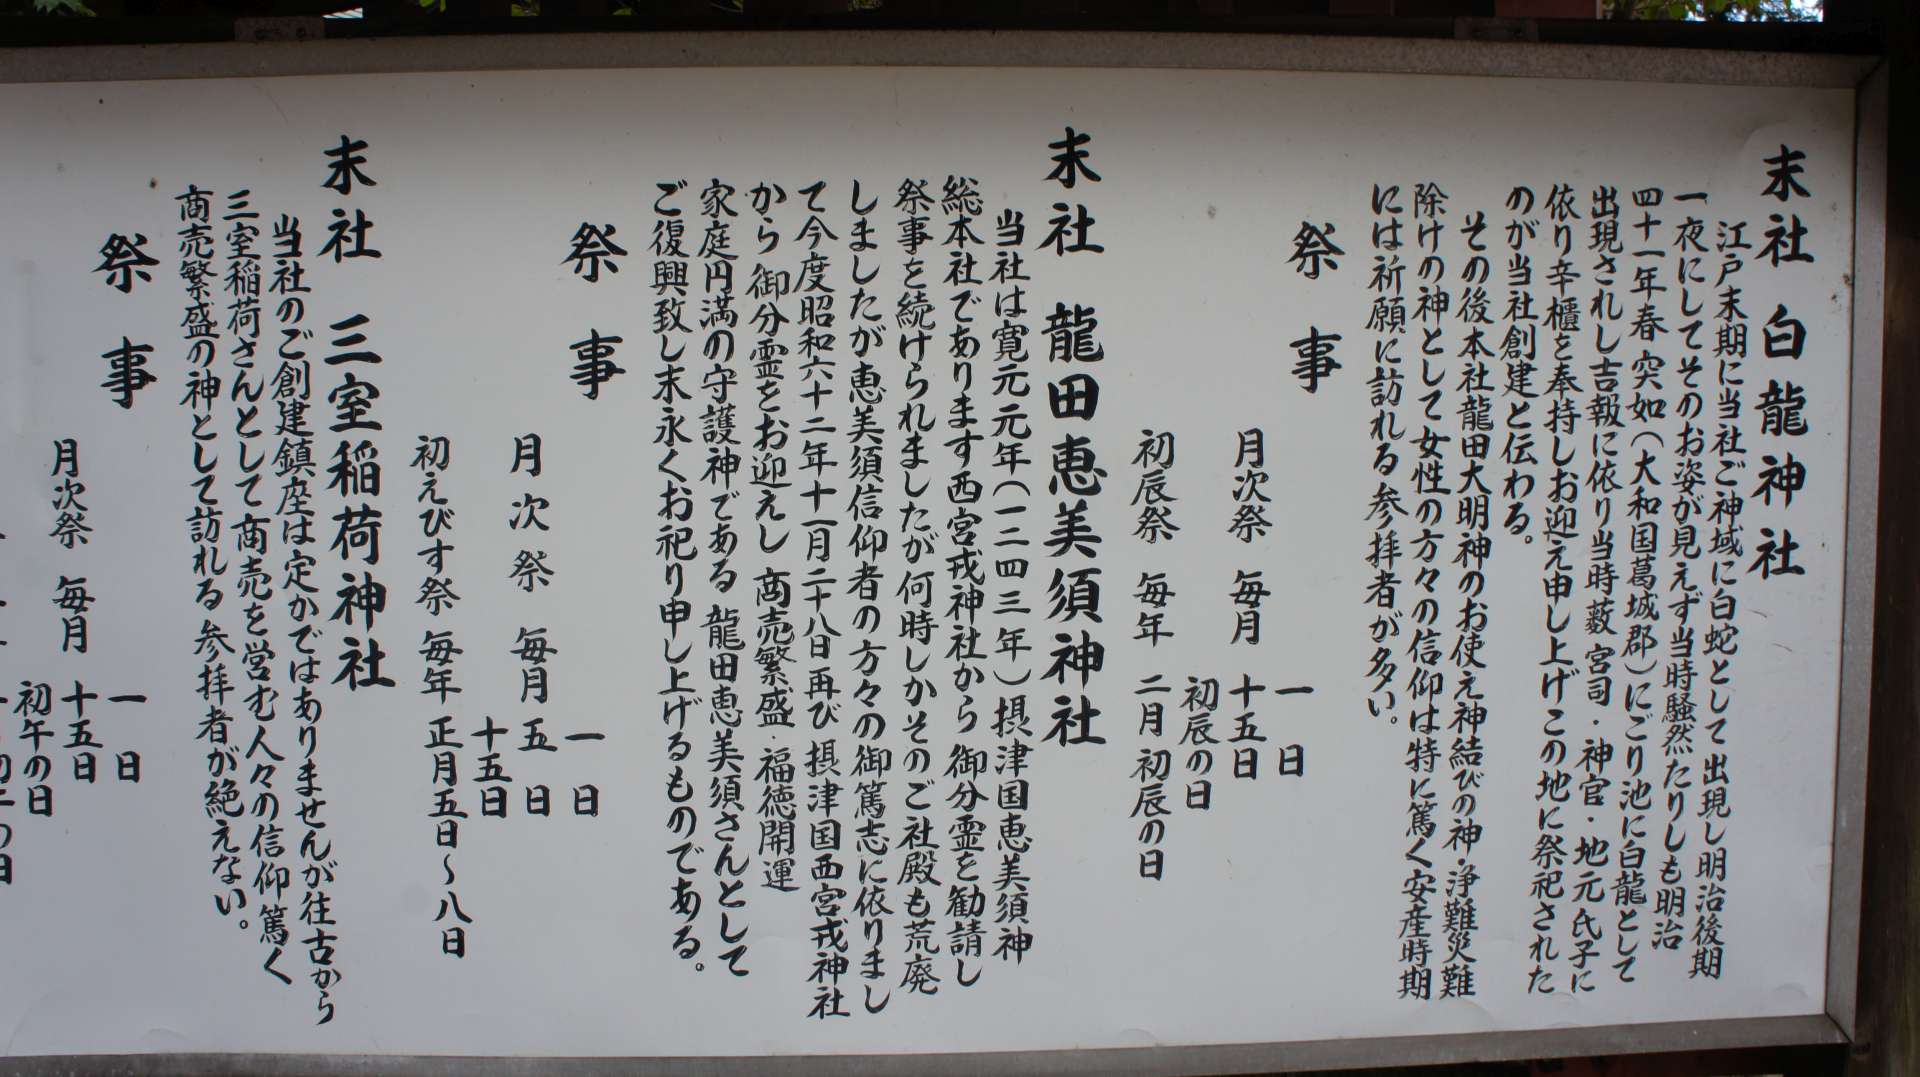 末社 白龍神社
江戸末期に当社ご神域に白蛇として出現し明治後期
一夜にしてそのお姿が見えず当時騒然たりしも明治
四十一年春突如(大和国葛城郡)にごり池に白龍として
出現されし吉報に依り当時藪宮司・神官・地元氏子に
依り辛櫃を奉持しお迎え申し上げこの地に祭祀された
のが当社創建と伝わる。
その後本社龍田大明神のお使え神結びの神・浄難災難
除けの神として女性の方々の信仰は特に篤く安産時期
には祈願に訪れる参拝者が多い。
祭事
一日
月次祭 毎月 十五日
初辰の日
初辰祭 毎年 二月 初辰の日
末社 龍田恵美須神社
当社は寛元元年(一二四三年)摂津国恵美須神
総本社であります西宮戎神社から御分霊を勧請し
祭事を続けられましたが何時しかそのご社殿も荒廃
しましたが恵美須信仰者の方々の御篤志に依りまし
て今度昭和六十二年十一月二十八日再び摂津国西宮戎神社
から御分霊をお迎えし商売繁盛・福徳開運
家庭円満の守護神である龍田恵美須さんとして
ご復興致し末永くお祀り申し上げるものである。
祭事
一日
月次祭 毎月 五日
十五日
初えびす祭 毎年 正月五日~八日
末社 三室稲荷神社
当社のご創建鎮座は定かではありませんが往古から
三室稲荷さんとして商売を営む人々の信仰篤く
商売繁盛の神として訪れる参拝者が絶えない。
祭事
一日
月次祭 毎月 十五日
初午の日